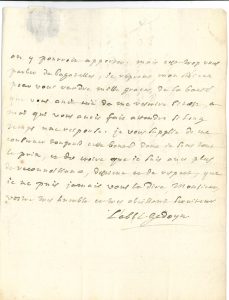 on y pourroit apporter, mais c'est trop vous
parler de bagatelles, je reprens mon
pour vous rendre mille graces, de la bonté
que vous avés eüe de me
moi qui vous avois fait attendre si long
temps une response. je vous supplie de me
continuer toujours cette bonté dont je sens tout
le prix, et de croire que je suis avec plus
de reconnoissance, d'estime et de respect, que
je ne puis jamais vous le dire Monsieur
votre tres humble et tres obeissant serviteur
L'abbé Gedoyn